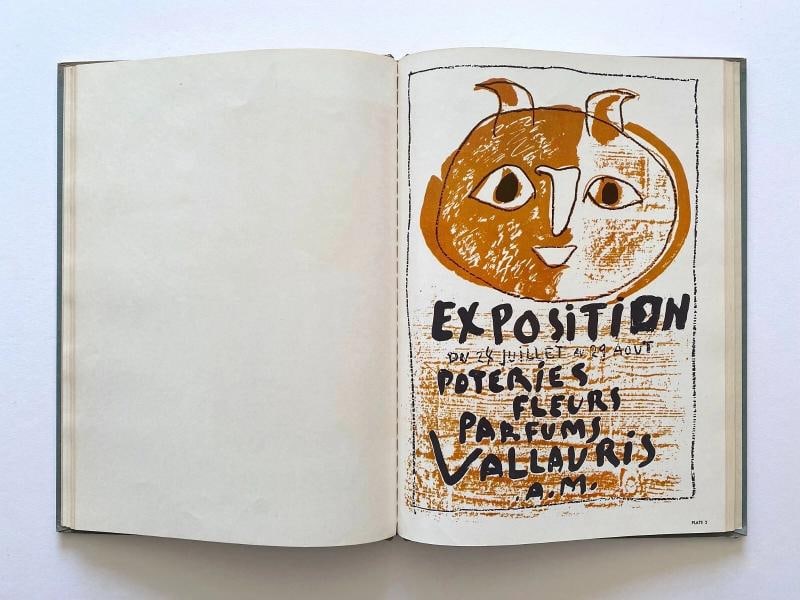 EXPOSITION
DU 24 JUILLET AU 29 AOUT
POTERIES
FLEURS
PARFUMS
VALLAURIS
.A.M.
PLATE 2